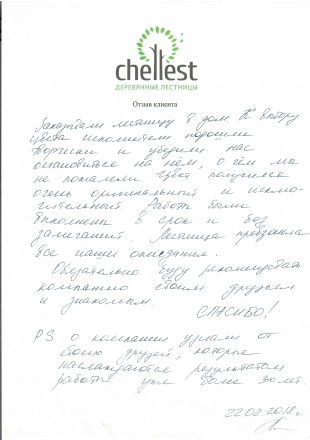 chellest
ДЕРЕВЯННЫЕ ЛЕСТНИЦЫ
Отзыв клиента
Заказывали лестницу в дом. К выбору
цвета исполнители подошли
творчески и убедили нас
остановиться на нём, о чём мы
не пожалели. Цвет получился
очень оригинальный и исклю-
чительный. Работы были
выполнены в срок и без
замечаний. Лестница превзошла
все наши ожидания.
Обязательно буду рекомендовать
компанию своим друзьям
и знакомым.
СПАСИБО!
P.S. о компании узнали от
своих друзей, которые
наслаждаются результатом
работы уже более лет.
22.02.2018г